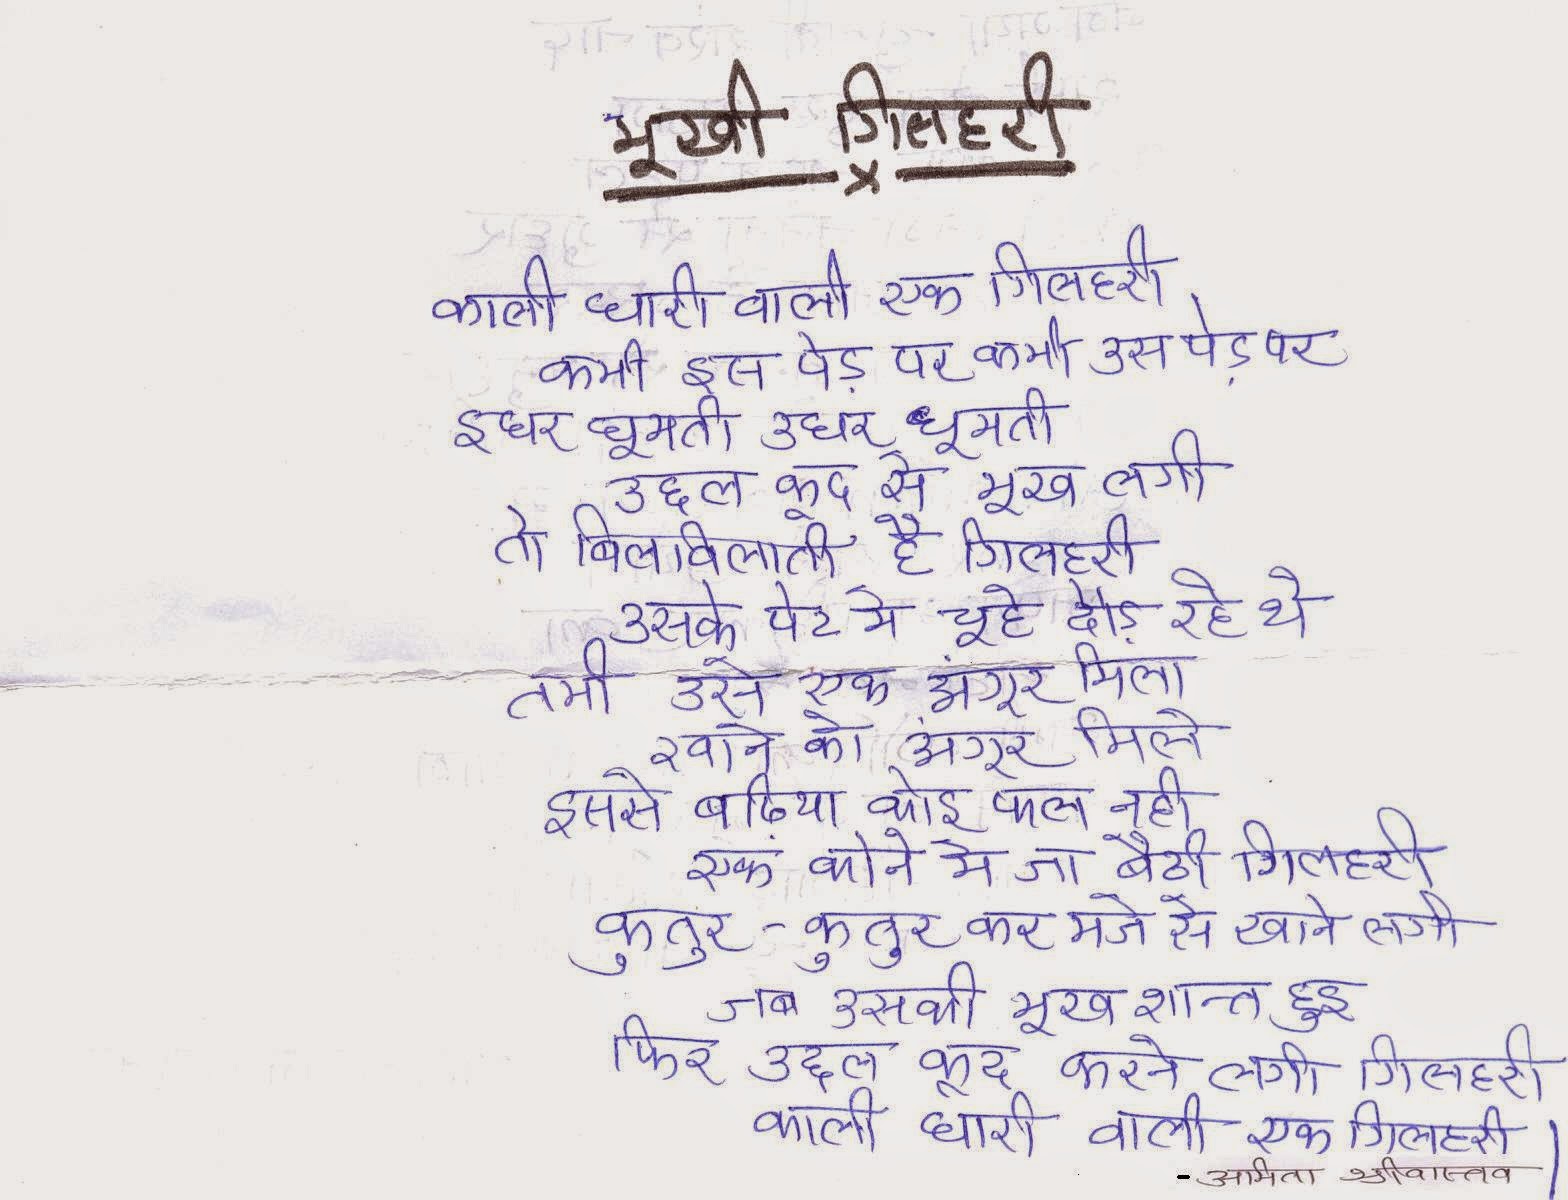 भूखी गिलहरी
x
काली धारी वाली एक गिलहरी,
कभी इस पेड़ पर कभी उस पेड़ पर
इधर घूमती उधर घूमती
उछल कूद से भूख लगी
तो बिलबिलाती है गिलहरी
उसके पेट मे चूहे दौड़ रहे थे
तभी उसे एक अंगूर मिला
खाने को अंगूर मिले
इससे बढ़िया कोइ फल नही
एक कोने मे जा बैठी गिलहरी
कुतुर - कुतुर कर मजे से खाने लगी
जब उसकी भूख शान्त हुइ
फिर उछल कूद करने लगी गिलहरी
काली धारी वाली एक गिलहरी।
- अमिता श्रीवास्तव